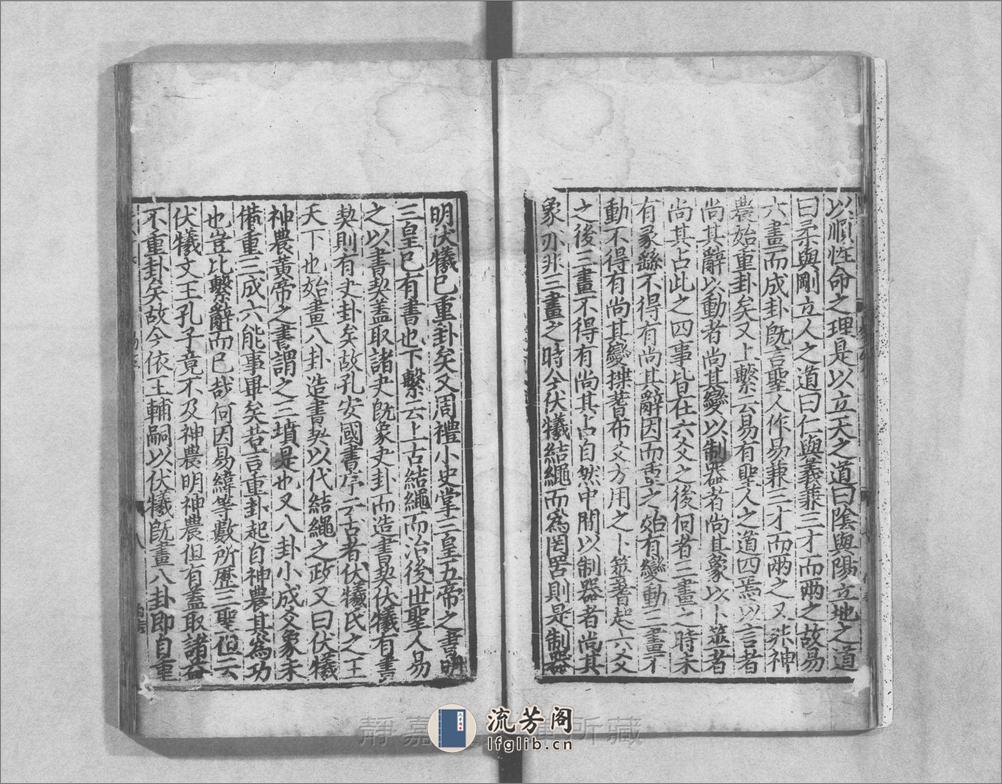 以順性命之理是以立天之道曰陰與陽立地之道
曰柔與剛立人之道曰仁與義兼三才而兩之故易
六畫而成卦旣言聖人作易兼三才而兩之又非神
農始重卦矣又上繫云易有聖人之道四焉以言者
尚其辭以動者尚其變以制器者尚其象以卜筮者
尚其占此之四事皆在六爻之後何者三畫之時未
有彖繇不得有尚其辭因而重之始有變動三畫不
動不得有尚其變揲蓍布爻方用之卜筮蓍起六爻
之後三畫不得有尚其占自然中間以制器者尚其
象亦非三畫之時今伏犧結繩而爲罔罟則是制器
明伏犧已重卦矣又周禮小史掌三皇五帝之書明
三皇已有書也下繫云上古結繩而治後世聖人易
之以書契蓋取諸夬旣象夬卦而造書契伏犧有書
契則有夬卦矣故孔安國書序云古者伏犧氏之王
天下也始畫八卦造書契以代結繩之政又曰伏犧
神農黃帝之書謂之三墳是也又八卦小成爻象未
備重三成六能事畢矣若言重卦起自神農其爲功
也豈比繫辭而已哉何因易緯等數所歷三聖但云
伏犧文王孔子竟不及神農明神農但有蓋取諸益
不重卦矣故今依王輔嗣以伏犧旣畫八卦即自重
靜嘉 所藏
流芳阁
lfglib.cn